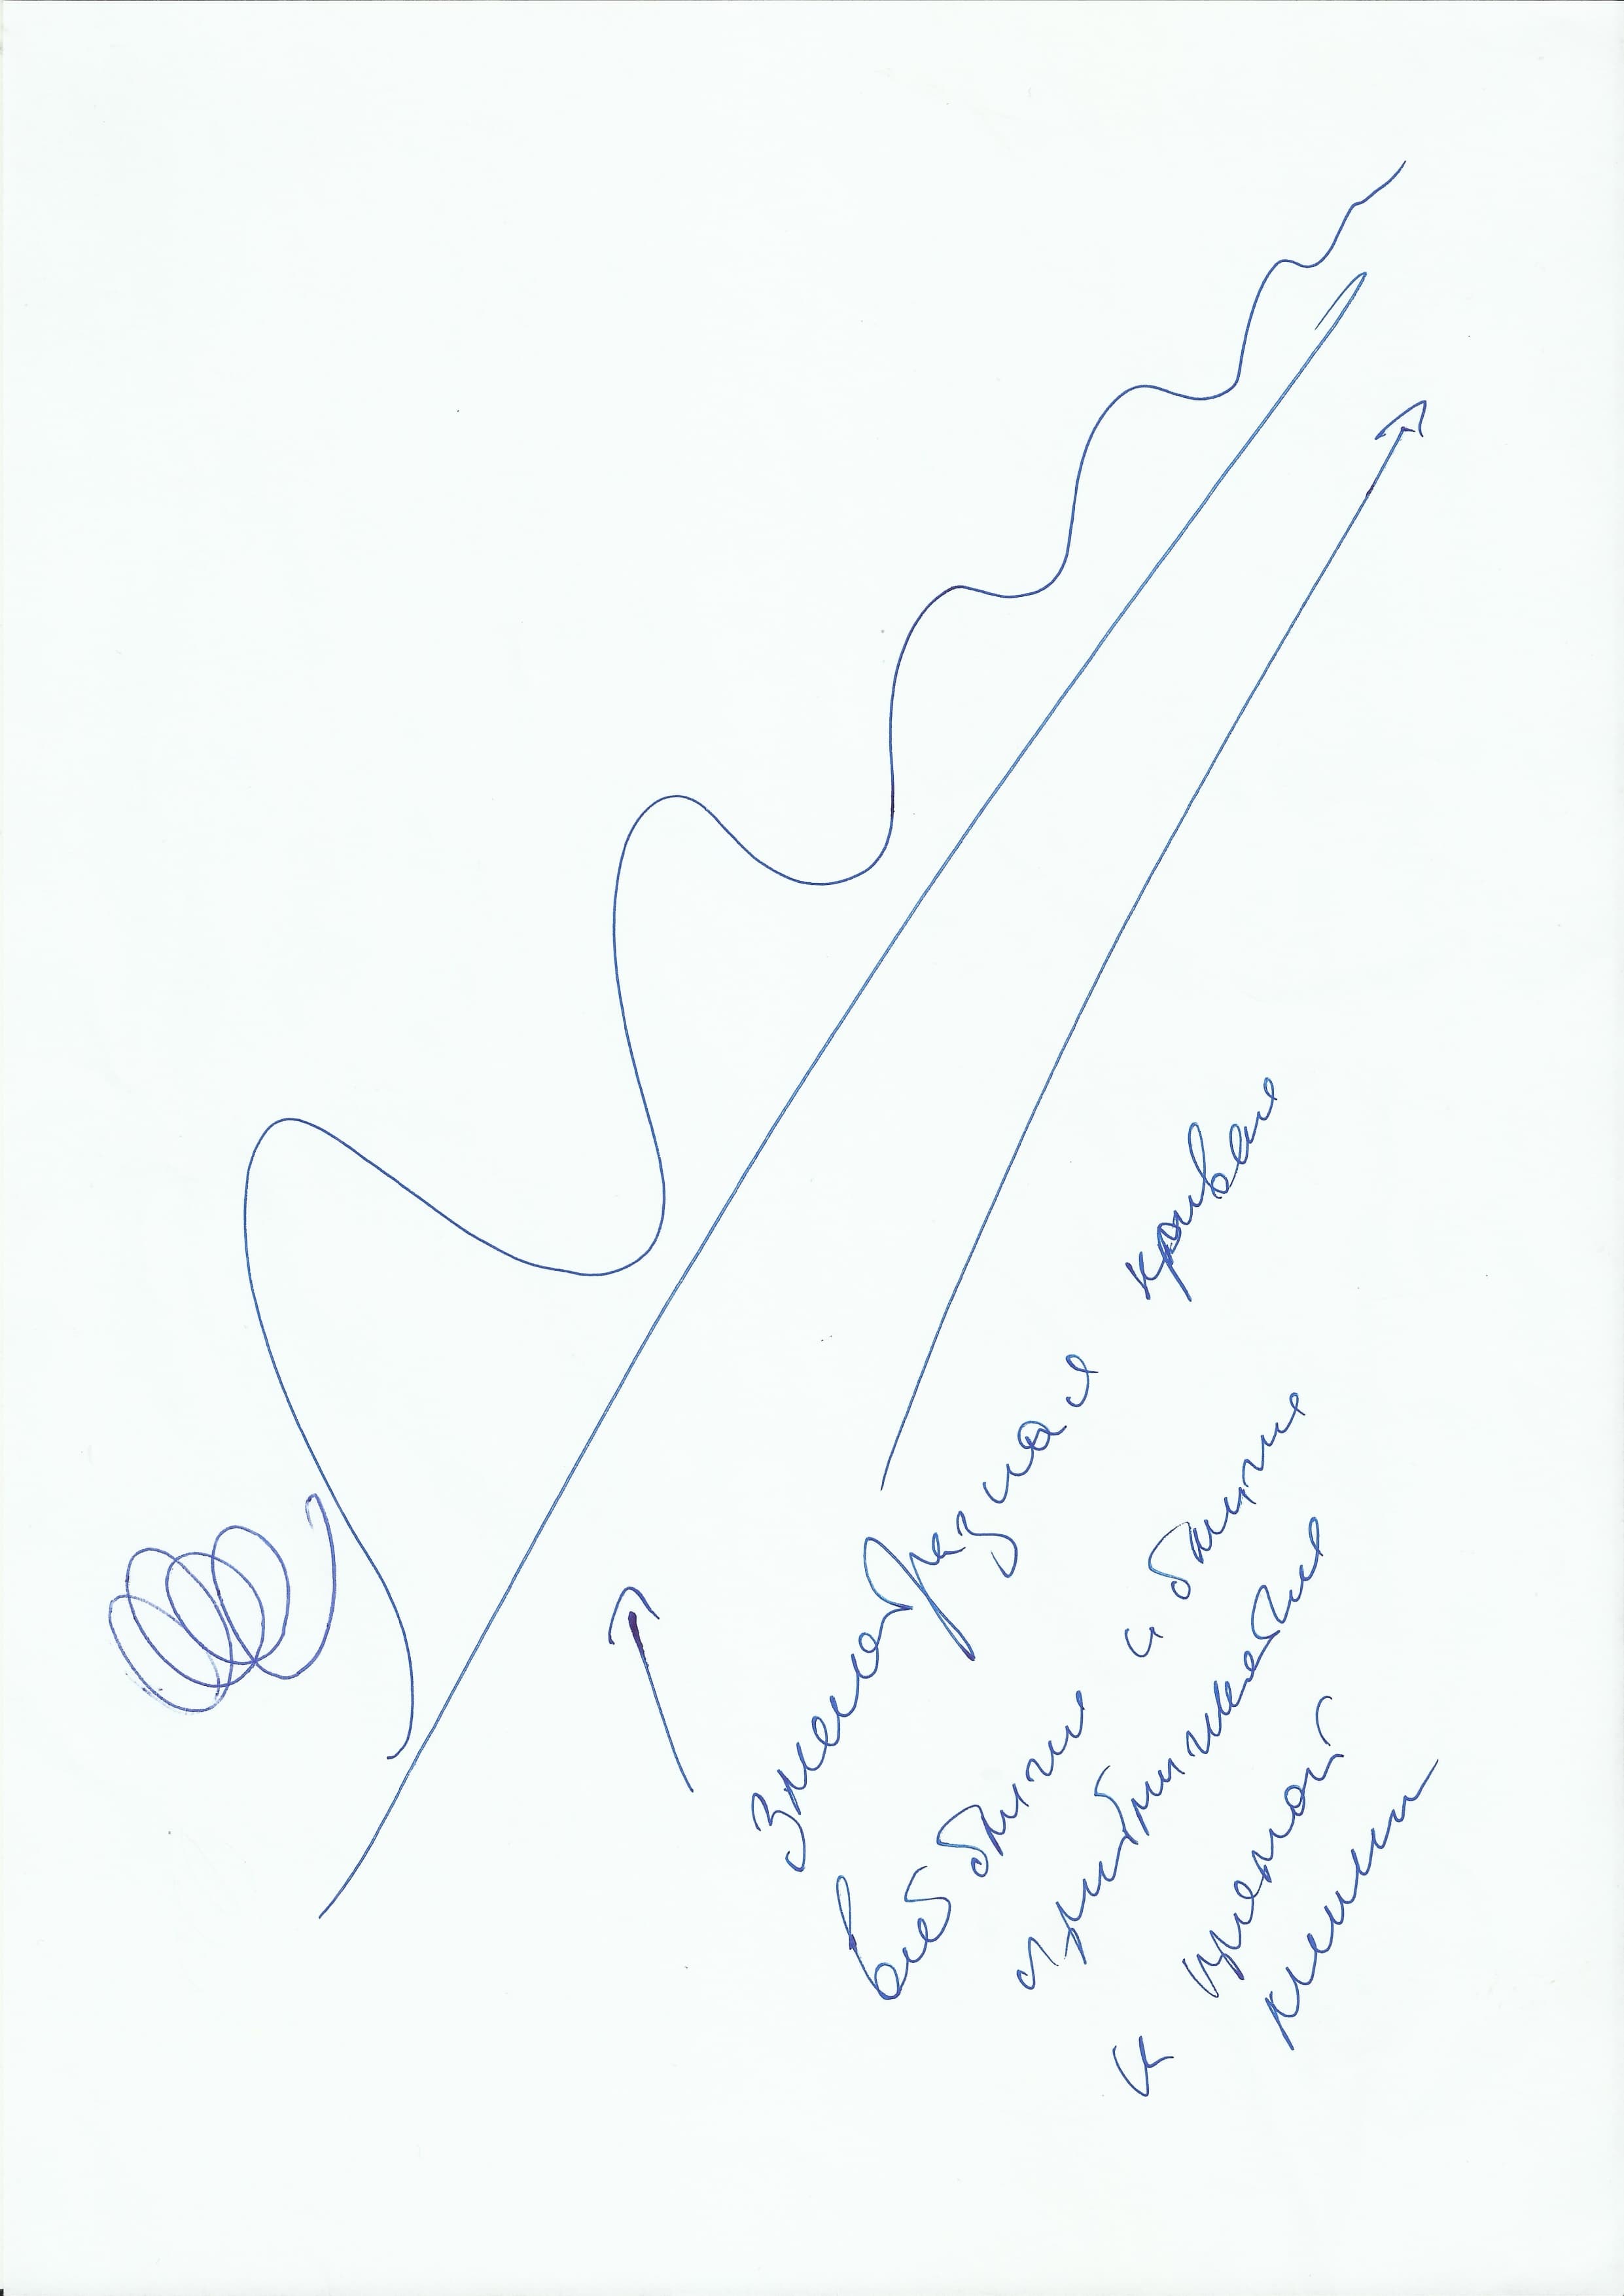 Змееобразная кривая
все ближе и ближе
приближается
к прямой
линии